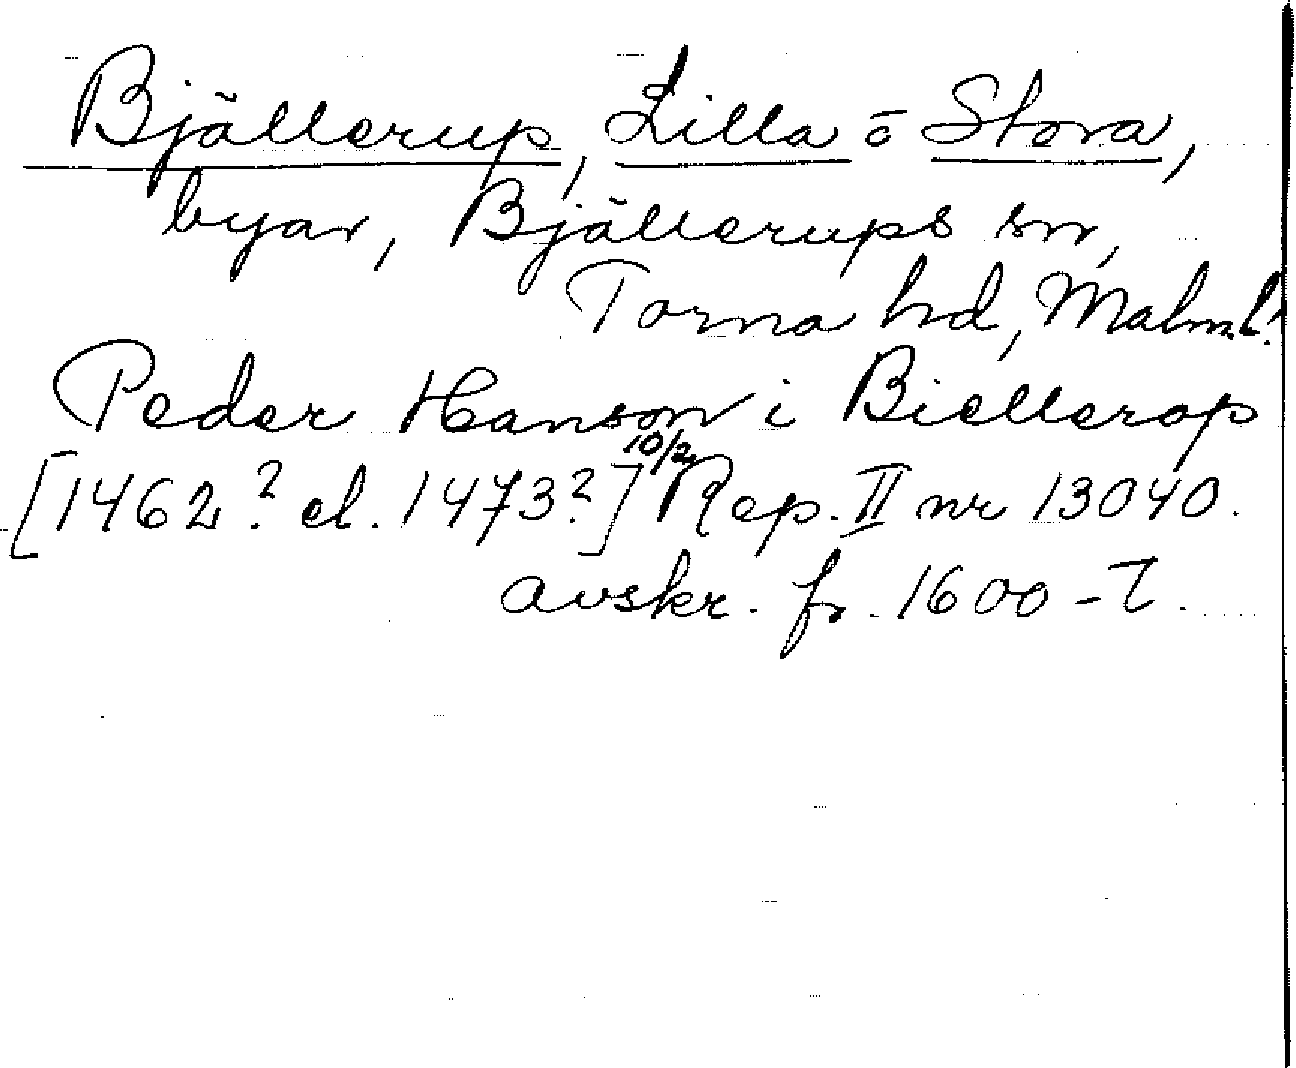 Bjällerup, Lilla o Stora,
byar, Bjällerups sn,
Torna hd, Malm.l.
Peder Hanson i Biellerop
[1462? el. 1473?] 10/2 Rep. II nr 13040.
avskr. fr. 1600-t.